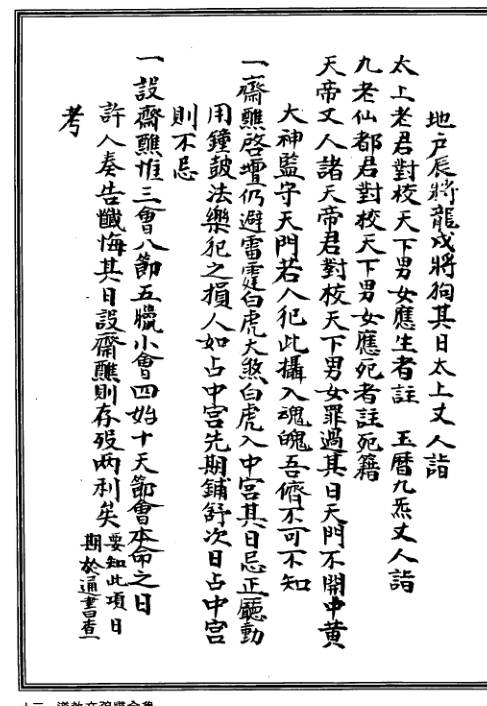 地戶辰將龍戌將狗其日太上丈人詣
太上老君對校天下男女應生者註 玉曆九炁丈人詣
九老仙都君對校天下男女應死者註死籍
天帝丈人諸天帝君對校天下男女罪過其日天門不開中黃
大神監守天門若人犯此攝人魂魄吾儕不可不知
一齋醮啓壇仍避雷霆白虎大煞白虎入中宮其日忌正廳動
用鐘鼓法樂犯之損人如占中宮先期鋪舒次日占中宮
則不忌
一設齋醮惟三會八節五臘小會四始十天節會本命之日
許人奏告懺悔其日設齋醮則存歿兩利矣 要知此項日
期於通書查
考